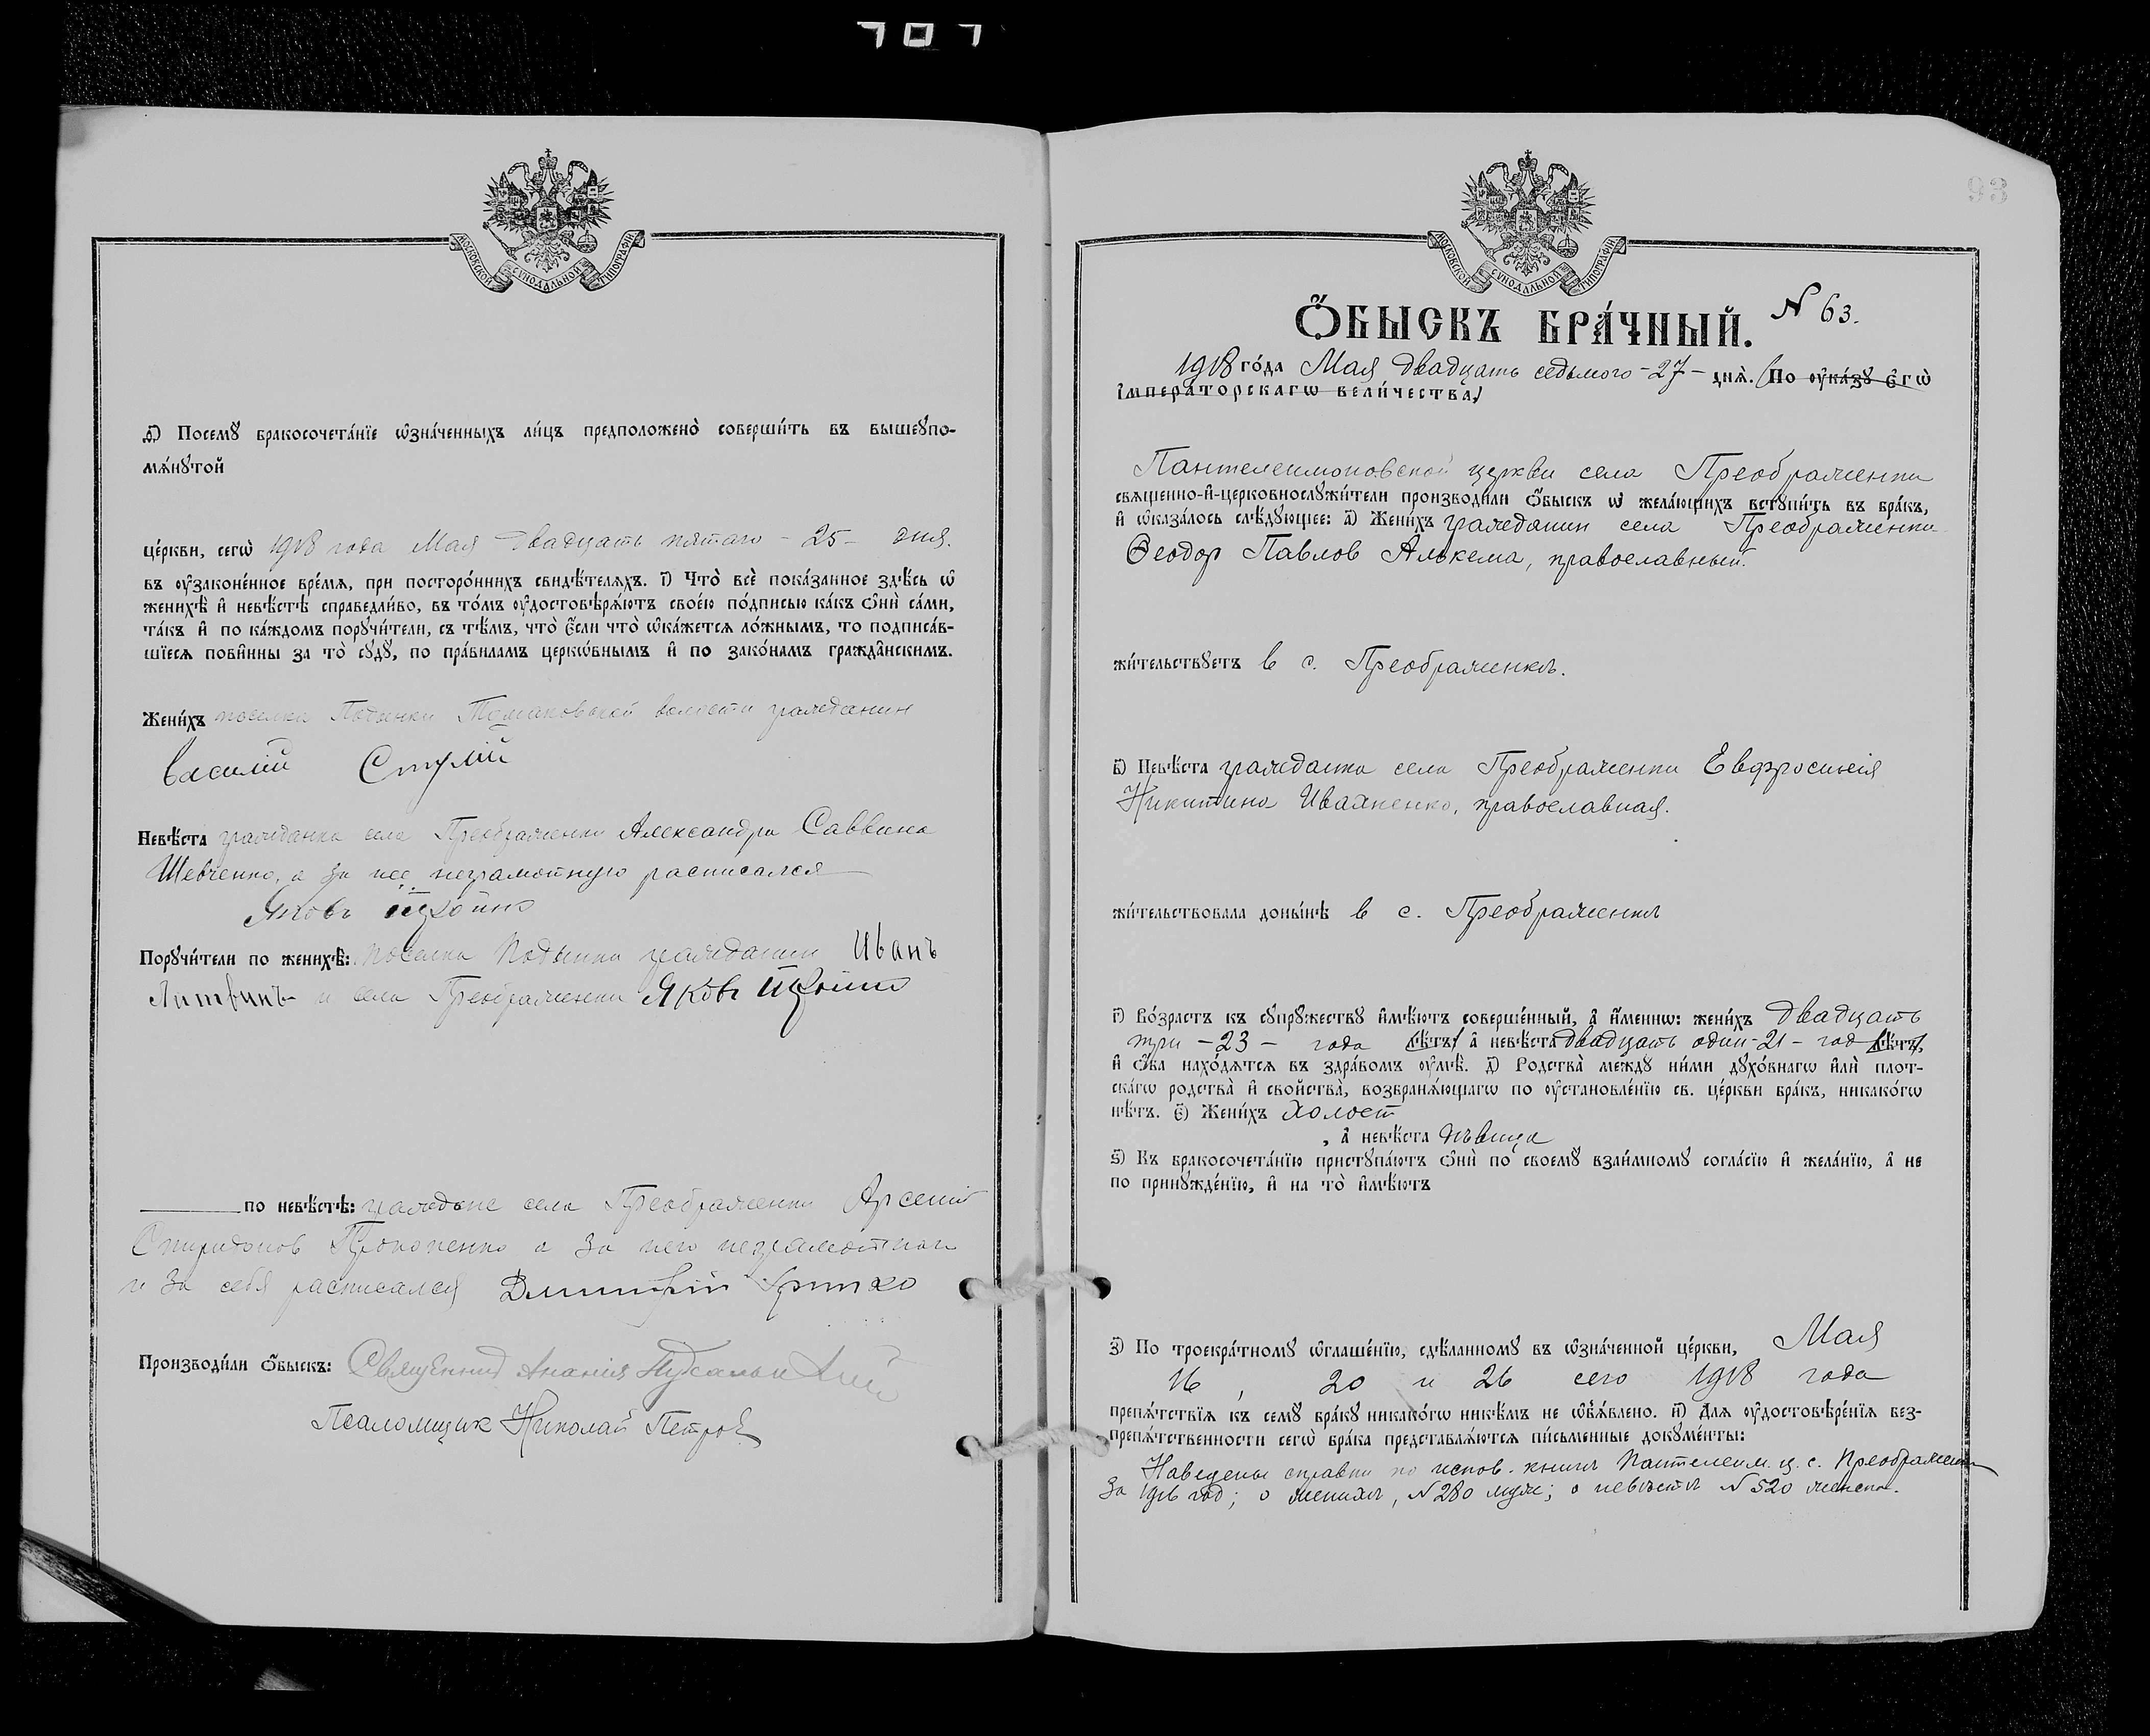 МОСКОВСКОЙ СѴНОДАЛЬНОЙ ТИПОГРАФІИ
ѳ҃) Посемꙋ̀ бракосочета́нїе ѡ҆зна́ченныхъ ли́цъ предположено̀ соверши́ть въ вышеꙋпо-
мѧ́нꙋтой
це́ркви, сегѡ̀ 1918 года Мая двадцать пятаго - 25 - дня.
въ ᲂу҆законе́нное вре́мѧ, при посторо́ннихъ свидѣ́телѧхъ. і҃) Что̀ всѐ пока́занное здѣ́сь ѡ҆
женихѣ̀ и҆ невѣ́стѣ справедли́во, въ то́мъ ᲂу҆достовѣрѧ́ютъ свое́ю по́дписью ка́къ ѻ҆нѝ са́ми,
та́къ и҆ по ка́ждомъ порꙋчи́тели, съ тѣ́мъ, что̀ є҆́сли что̀ ѡ҆ка́жетсѧ ло́жнымъ, то подписа́в-
шїесѧ пови́нны за то̀ сꙋдꙋ̀, по пра́виламъ церкѡ́внымъ и҆ по зако́намъ гражда̑нскимъ.
Жени́хъ поселка Томаковской волости гражданин
Василій
Невѣ́ста гражданка села Преображенки Александра Саввина
Шевченко, а за нее неграмотную расписался
Яковъ
Порꙋчи́тели по женихѣ̀: поселка гражданин Иванъ
Литвинъ и села Преображенки Яковъ
по невѣ́стѣ: граждане села Преображенки Арсений
Спиридонов Прокопенко а за него неграмотнаго
и за себя расписался Димитрій
Производи́ли ѻ҆́быскъ: Священник Ананія
Псаломщик Николай Петров
93
МОСКОВСКОЙ СѴНОДАЛЬНОЙ ТИПОГРАФІИ
Ѻ҆́БЫСКЪ БРА́ЧНЫЙ. N 63.
1918 го́да Мая двадцать седьмого - 27 - днѧ̀. (По ᲂу҆ка́зꙋ є҆гѡ̀
і҆мпера́торскагѡ вели́чества)
Пантелеимоновской церкви села Преображенки
свѧщенно-и҆-церковнослꙋжи́тели производи́ли ѻ҆́быскъ ѡ҆ жела́ющихъ встꙋпи́ть въ бра́къ,
и҆ ѡ҆каза́лось слѣ́дꙋющее: а҃) Жени́хъ гражданин села Преображенки
Ѳеодор Павлов Алькема, православный.
жи́тельствꙋетъ в с. Преображенкѣ.
в҃) Невѣ́ста гражданка села Преображенки Евфросинія
Никитина Ивахненко, православная.
жи́тельствовала доны́нѣ в с. Преображенкѣ
г҃) Во́зрастъ къ сꙋпрꙋ́жествꙋ и҆мѣ́ютъ соверше́нный, а҆ и҆́меннѡ: жени́хъ двадцать
три - 23 - года (лѣ́тъ) а҆ невѣ́ста двадцать один - 21 - год (лѣ́тъ),
и҆ ѻ҆́ба нахо́дѧтсѧ въ здра́вомъ ᲂу҆мѣ̀. д҃) Родства̀ ме́ждꙋ ни́ми дꙋхо́внагѡ и҆лѝ плот-
ска́гѡ родства̀ и҆ свойства̀, возбранѧ́ющагѡ по ᲂу҆становле́нїю св. це́ркви бра́къ, никако́гѡ
нѣ́тъ. є҃) Жени́хъ холост
, а҆ невѣ́ста дѣвица
ѕ҃) Къ бракосочета́нїю пристꙋпа́ютъ ѻ҆нѝ по своемꙋ̀ взаи́мномꙋ согла́сїю и҆ жела́нїю, а҆ не
по принꙋжде́нїю, и҆ на то̀ и҆мѣ́ютъ
з҃) По троекра́тномꙋ ѡ҆глаше́нїю, сдѣ́ланномꙋ въ ѡ҆зна́ченной це́ркви, Мая
16, 20 и 26 сего 1918 года
препѧ́тствїѧ къ семꙋ̀ бра́кꙋ никако́гѡ никѣ́мъ не ѡ҆б̾ѧ́влено. и҃) Для ᲂу҆достовѣре́нїѧ без-
препѧ́тственности сегѡ̀ бра́ка представлѧ́ютсѧ пи́сьменные докꙋме́нты:
Наведены справки по испов. книгѣ Пантелеим. ц. с. Преображенки
за 1916 год; о женихѣ, N 280 муж; о невѣстѣ N 520 женска.